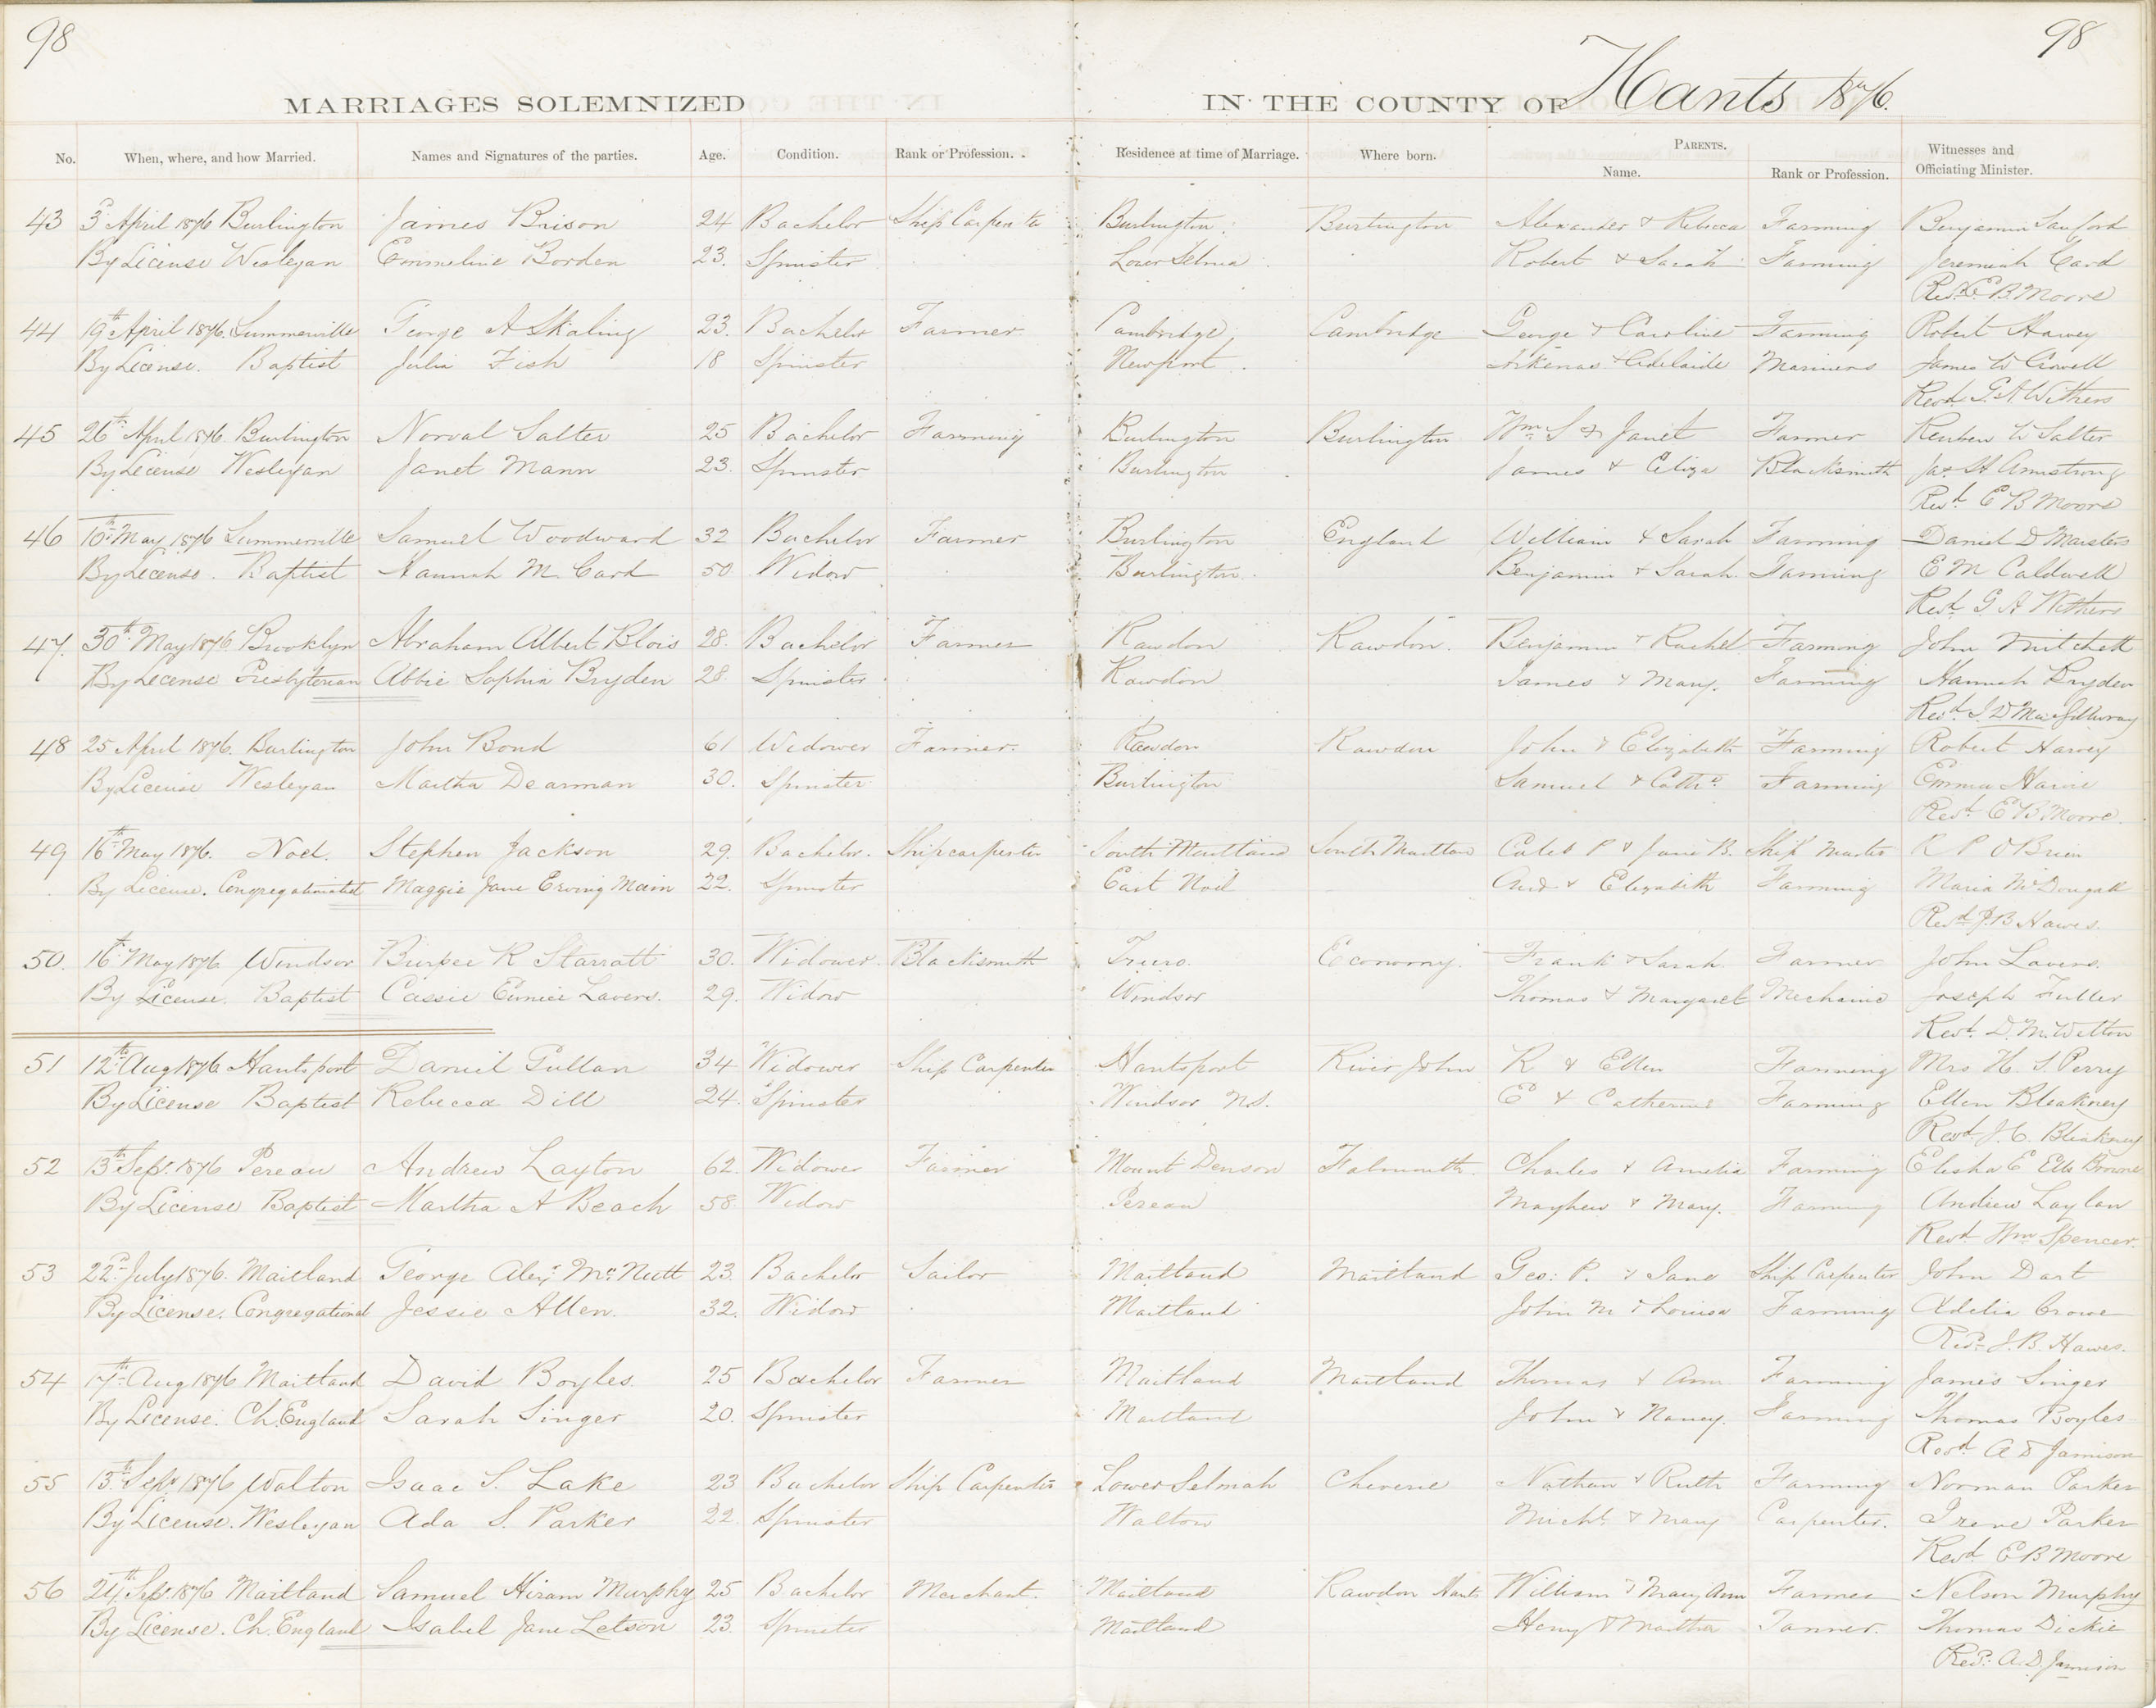 98 98
MARRIAGES SOLEMNIZED IN THE COUNTY OF Hants 1876.
PARENTS.
No. When, where, and how Married. Names and Signatures of the parties. Age. Condition. Rank or Profession. Residence at time of Marriage. Where born. Name. Rank or Profession. Witnesses and Officiating Minister.
43 3d April 1876 Burlington James Brison 24 Bachelor Ship Carpenter Burlington Burlington Alexander & Rebecca Farming Benjamin Sanford
By License Wesleyan Emmeline Borden 23. Spinster Lower Selma Robert & Sarah Farming Jeremiah Card
Revd. E B. Moore
44 19th April 1876. Summerville George A Skaling 23. Bachelor Farmer Cambridge Cambridge George & Caroline Farming Robert Harvey
By License. Baptist Julia Fish 18 Spinster Newport & Adelaide Mariners James W Crowell
Revd. G. A. Withers
45 26th April 1876. Burlington Norval Salter 25 Bachelor Farming Burlington Burlington Wm. S & Janet Farmer Reuben W Salter
By License Wesleyan Janet Mann 23. Spinster Burlington James & Eliza Blacksmith Jas. H Armstrong
Revd. E B Moore
46 10th May 1876 Summerville Samuel Woodward 32 Bachelor Farmer Burlington England William & Sarah Farming Daniel D Masters
By License. Baptist Hannah M. Card 50 Widow Burlington. Benjamin & Sarah. Farming E M Caldwell
Revd. G A Withers
47. 30th May 1876 Brooklyn Abraham Albert Blois 28. Bachelor Farmer Rawdon Rawdon. Benjamin & Rachel Farming John Mitchell
By License Presbyterian Abbie Sophia Bryden 28. Spinster Rawdon James & Mary. Farming Hannah Bryden
Revd. J. D MacGillivray
48 25 April 1876. Burlington John Bond 61 Widower Farmer. Rawdon Rawdon John & Elizabeth Farming Robert Harvey
By License Wesleyan Martha Dearman 30. Spinster Burlington Samuel & Cath. Farming Emma Harvie
Revd. E B Moore.
49 16th May 1876. Noel. Stephen Jackson 29. Bachelor. Shipcarpenter South Maitland South Maitland Caleb P & Jane B. Ship Master R P OBrien
By License. Congregationalist Maggie Jane Erving Main 22. Spinster East Noel And. & Elizabeth Farming Maria McDougall
Revd J. B Hawes.
50. 16th May 1876 Windsor Burpee R Starratt 30. Widower. Blacksmith Truro Economy. Frank & Sarah. Farmer John Lavers.
By License. Baptist Cassie Eunice Lavers. 29. Widow Windsor Thomas & Margaret Mechanic Joseph Fuller
Revd. D. M. Welton
51 12th Aug 1876 Hantsport Daniel Gullan 34 Widower Ship Carpenter Hantsport River John R & Ellen Farming Mrs H. S. Perry
By License Baptist Rebecca Dill 24. Spinster Windsor N.S. E & Catherine Farming Ellen Bleakney
Revd. J. C. Bleakney
52 13th Sep. 1876 Pereau Andrew Layton 62. Widower Farmer Mount Denson Falmouth. Charles & Amelia Farming Elisha E Ells Browne
By License Baptist Martha A Beach 58. Widow Pereau Mayhew & Mary. Farming Andrew Laylan
Revd. Wm Spencer.
53 22d. July 1876. Maitland George Alexr. McNutt 23. Bachelor Sailor Maitland Maitland Geo: P. & Jane Ship Carpenter John Dart
By License. Congregational Jessie Allen. 32. Widow Maitland John M & Louisa Farming Adelia Crowe
Revd. J. B. Hawes.
54 17th Aug 1876 Maitland David Boyles. 25 Bachelor Farmer Maitland Maitland Thomas & Ann Farming James Singer
By License. Ch. England Sarah Singer 20. Spinster Maitland John & Nancy. Farming Thomas Boyles
Revd. A D Jamison
55 13th Sep. 1876 Walton Isaac S. Lake 23 Bachelor Ship Carpenter Lower Selmah Cheverie Nathan & Ruth Farming Norman Parker
By License. Wesleyan Ada S. Parker 22. Spinster Walton Michl. & Mary Carpenter. Irene Parker
Revd E B Moore
56 24th Sep. 1876 Maitland Samuel Hiram Murphy 25 Bachelor Merchant. Maitland Rawdon Hants William & Mary Ann Farmer Nelson Murphy
By License. Ch. England Isabel Jane Letson 23. Spinster Maitland Henry & Martha Tanner. Thomas Dickie
Revd. A. D. Jamison